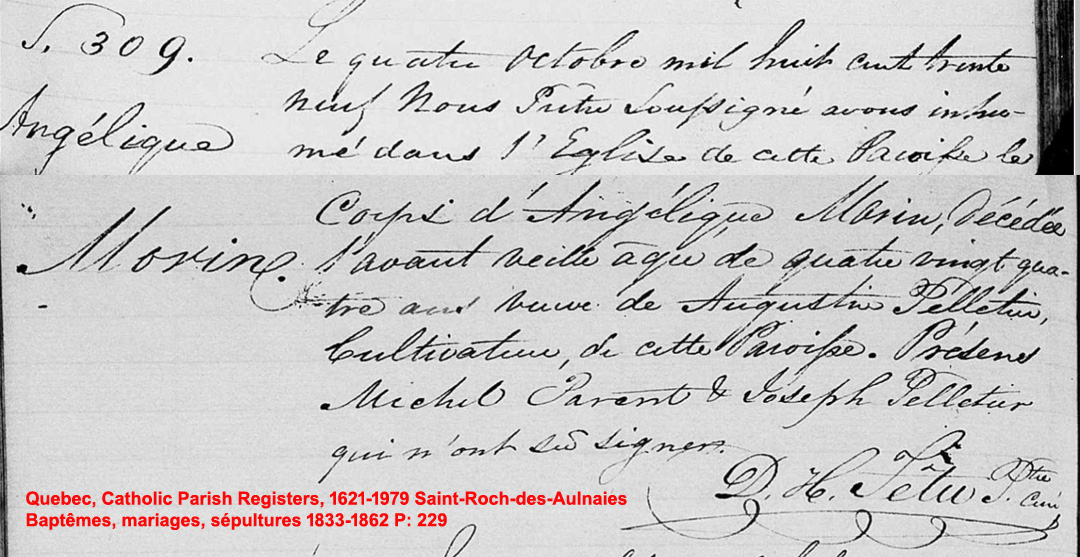 S. 309.
Angélique
Morin.
Le quatre Octobre mil huit cent trente
neuf Nous Prêtre Soussigné avons inhu-
mé dans l'Eglise de cette Paroisse le
Corps d'Angélique Morin, décédée
l'avant veille âgée de quatre vingt qua-
tre ans veuve de Augustin Pelletier,
Cultivateur, de cette Paroisse. Présens
Michel Parent & Joseph Pelletier
qui n'ont sû signer.
D. H. Têtu Ptre
curé
Quebec, Catholic Parish Registers, 1621-1979 Saint-Roch-des-Aulnaies
Baptêmes, mariages, sépultures 1833-1862 P: 229